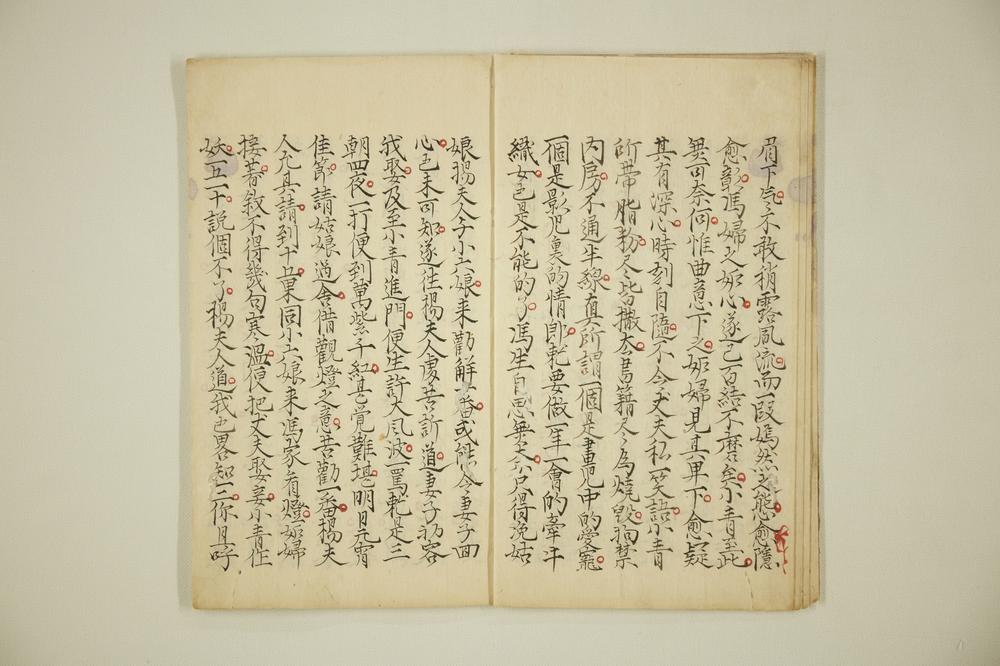 眉下气不敢稍露風流而一段嫣然之態愈隱
愈彰馮婦之妬心遂已百結不磨矣小青至此
無可奈何惟曲意下之妬婦見其卑下愈疑
其有深心時刻自隨不令丈夫私一笑語小青
所帶脂粉尽皆撒去書籍尽為燒毀拘禁
内房不通半線真所謂一個是畫児中的愛寵
一個是影児裏的情郎乾要做一年一會的牽牛
織女也是不能的了馮生自思無奈只得浼姑
娘楊夫人于小六娘来勸解一番或能令妻子回
心也未可知遂往楊夫人處告訴道妻子初容
我娶及至小青進門便生許大風波一罵乾是三
朝四夜一打便到萬紫千紅甚覺難堪明日元宵
佳節請姑娘過舍借觀燈之意苦勸一番楊夫
人允其請到十五果同小六娘来馮家看燈妬婦
接着敘不得幾句寒温便把丈夫娶妾小青作
妖一五一十説個不了楊夫人道我也畧知一二你自呼